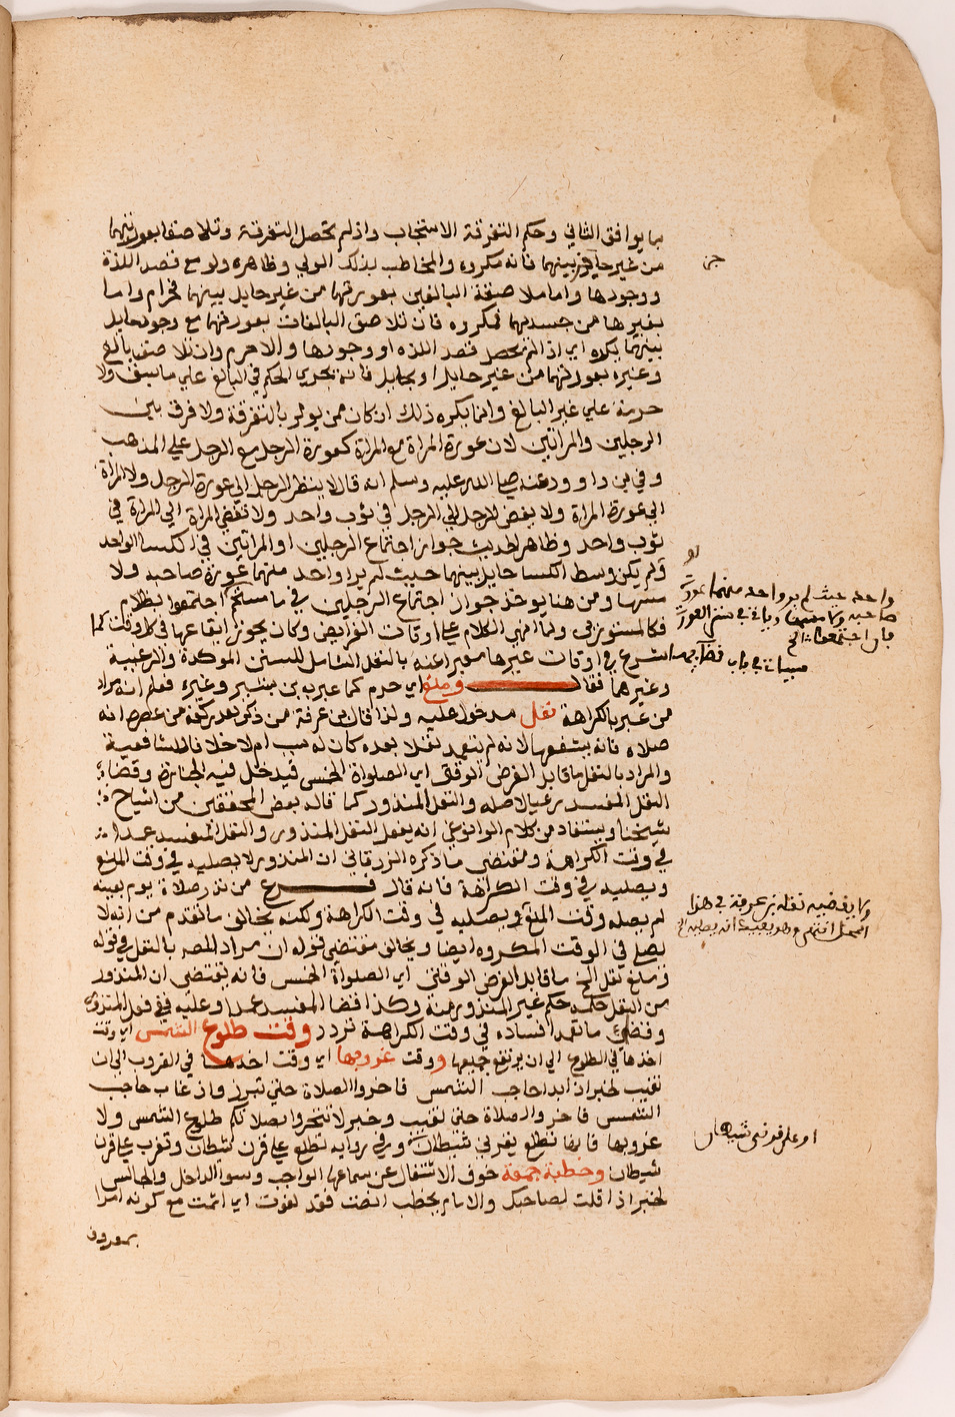 بما يوافق الثاني وحكم التفرقة الاستحباب واذ لم تحصل التفرقة وتلاصقا بعورتيهما
من غير حايل بينهما فانه مكروه والمخاطب بذلك الولي وظاهره ولو مع قصد اللذة
ووجودها واما ملاصقة البالغين بعورتهما من غير حايل بينهما فحرام واما
بغيرها من جسديهما فمكروه فان تلاصق البالغات بعورتهما مع وجود حايل
بينهما يكره اي اذ الم يحصل قصد اللذه او وجودها والاحرم وان تلاصق بالغ
وغيره بعورتهما من غير حايل او بحايل فانه يجري الحكم في البالغ علي ما سبق ولا
حرمة علي غير البالغ وانما يكره ذلك ان كان ممن يومر بالتفرقة ولا فرق بين
الرجلين والمراتين لان عورة المراة مع المراة كعورة الرجل مع الرجل علي المذهب
وفي ابي داوود عنه صلي الله عليه وسلم انه قال لا ينظر الرجل الي عورة الرجل ولا المراة
الي عورة المراة ولا يفض الرجل الي الرجل في ثوب واحد ولا تفضي المراة الي المراة في
ثوب واحد وظاهر الحديث جواز اجتماع الرجلين او المراتين في الكسا الواحد
ولم يكن وسط الكسا حايل بينهما حيث لم ير واحد منهما عورة صاحبه ولا
مسها ومن هنا يوخذ جواز اجتماع الرجلين في ما اجتمعوا بظلام
فكالمستورين ولما انهي الكلام علي اوقات الفرايض وكان يجوز ايقاعها في كل وقت كما
شرع في اوقات غيرها معبرا عنه بالنفل الشامل للسنن الموكدة والرغيبة
وغيرها فقال ومنع اي حرم كما عبر به بن بشير وغيره فعلم انه مراد
من عبر بالكراهة نفل مدخول عليه ولذا قال بن عرفة من ذكر بعد ركعة من عصر انه
صلاه فانه يشفعها لانه لم يتعمد نفلا بعده كان له سبب ام لا خلافا للشافعية
والمراد بالنفل ما قابل الفرض الوقتي اي الصلواة الخمس فيدخل فيه الجنازة وقضا
النفل المفسد رعيا لاصله والنفل المنذور كما قاله بعض المحققين من اشياخ
شيخنا ويستفاد من كلام الوانوغي انه يفعل النفل المنذور والنفل المفسد عمدا
في وقت الكراهة ومقتضي ما ذكره الزرقاني ان المنذور لا يصليه في وقت المنع
ويصليه في وقت الكراهة فانه قال فرع من نذر صلاة يوم بعينه
لم يصله وقت المنع ويصليه في وقت الكراهة ولكنه يخالف ما تقدم من انه لا
يصلي في الوقت المكروه ايضا ويخالف مقتضي قوله ان مراد المص بالنفل في قوله
ومنع نفل الخ ما قابل الفرض الوقتي اي الصلواة الخمس فانه يقتضي ان المنذور
من النفل حكمه حكم غير المنذور منه وكذا قضا المفسد عمدا وعليه ففي فعل المنذور
وقضا ما تعمد افساده في وقت الكراهة تردد وقت طلوع الشمس اي وقت
اخذها في الطلوع الي ان يرتفع جميعها ووقت غروبها اي وقت اخذها في الغروب الي ان
تغيب لخبر اذ ابدا حاجب الشمس فاخروا الصلاة حتي تبرز وان غاب حاجب
الشمس فاخروا الصلاة حتي تغيب وخبر لا تتحروا بصلاتكم طلوع الشمس ولا
غروبها فانها تطلع بقرني شيطان وفي رواية تطلع علي قرن شيطان وتغرب علي قرن
شيطان وخطبة جمعة خوف الاشتغال عن سماعها الواجب وسوا الداخل والجالس
لخبر اذا قلت لصاحبك والامام يخطب انصت فقد لغوت اي اثمت مع كونه امرا
بمعروف
واحد حيث لم ير واحد منهما عورة
صاحبه
ولا يقتضيه نقل بن عرفة في هذا
او علي قرني شيطان